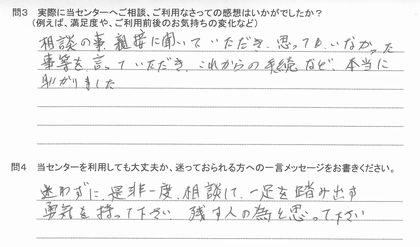 問3 実際に当センターへご相談、ご利用なさっての感想はいかがでしたか？
(例えば、満足度や、ご利用前後のお気持ちの変化など)
相談の事親接に聞いていただき、思ってもいなかった
事等を言っていただき、これからの手続など、本当に
助がりました
問4 当センターを利用しても大丈夫か、迷っておられる方への一言メッセージをお書きください。
迷わずに是非一度、相談して、一足を踏み出す
勇気を持って下さい 残す人の為と思って下さい